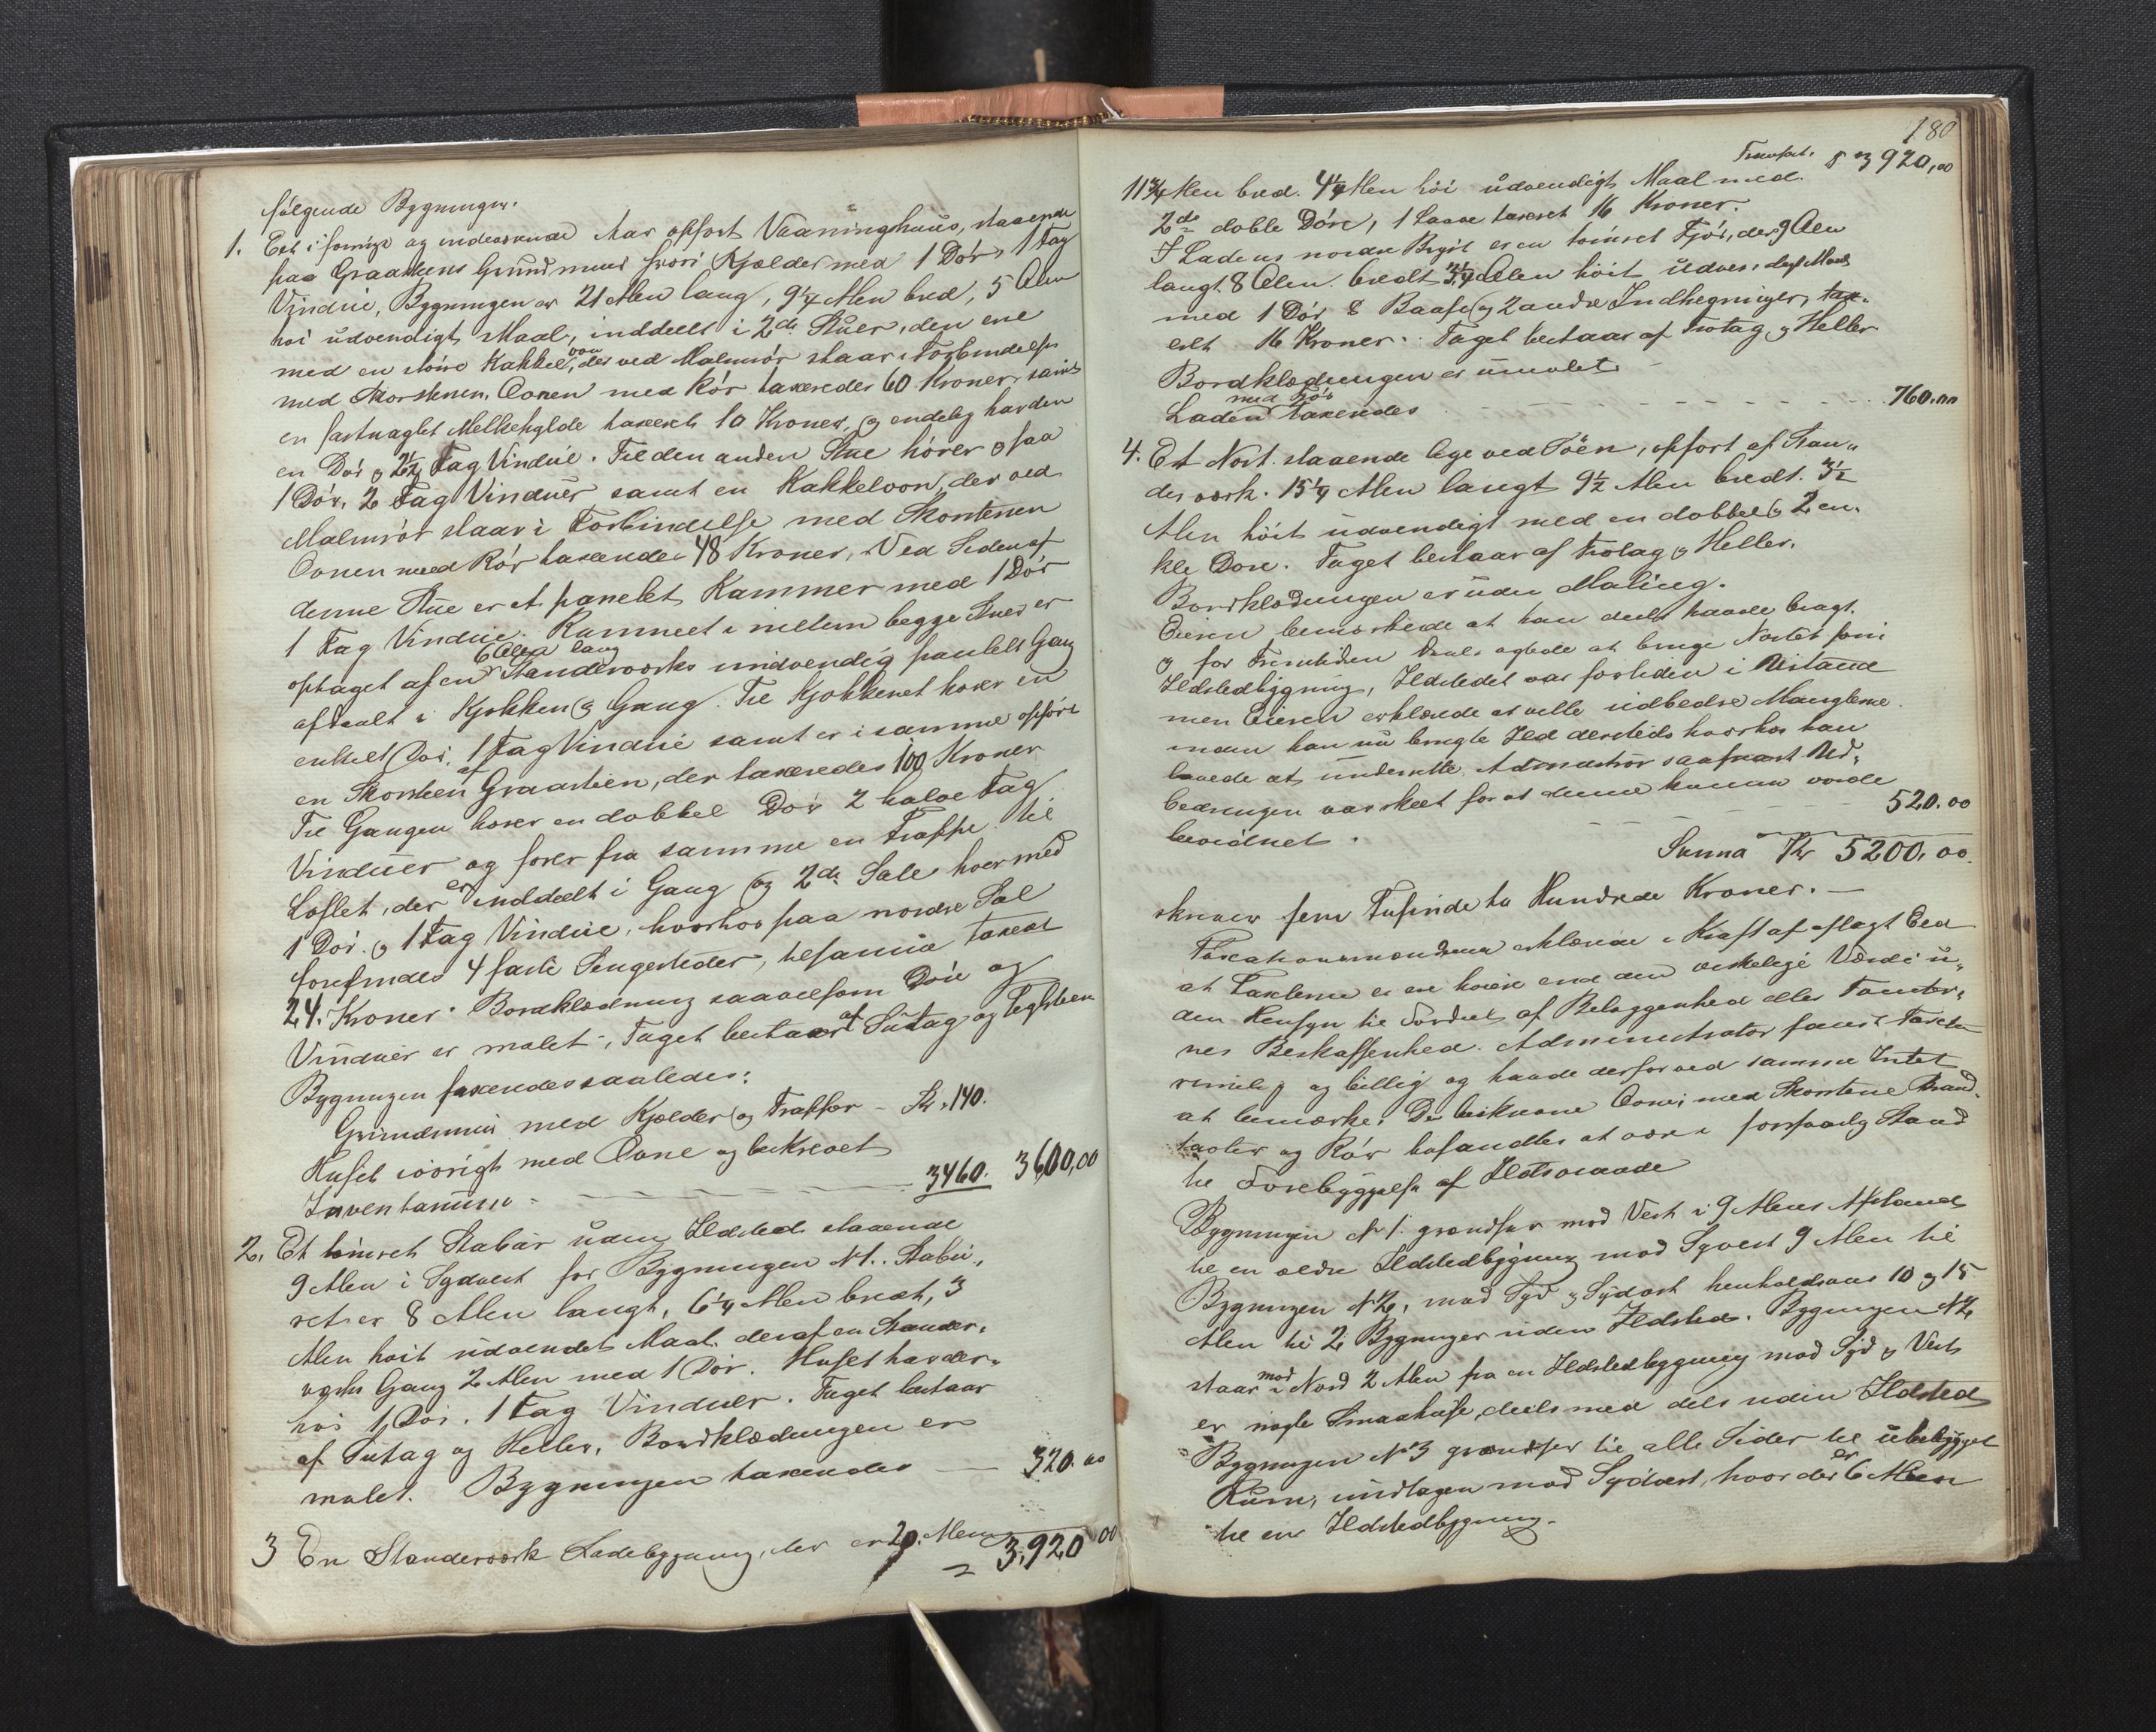 følgende Bygninger.
1. Et i forrige og indeværende Aar opført Vaaningshuus, staaende
paa Graasteens Grundmuur hvori Kjelder med 1 Dør, 1 Fag
Vindue, Bygningen er 21 Alen lang, 9 1/4 Alen bred, 5 Alen
høi udvendigt Maal, inddeelt i 2de Stuer, den ene
med en større Kakkelovn, der ved Malmrør staar i Forbindelse
med Skorstenen. Ovnen med Rør taxeredes 60 Kroner, samt
en fastnaglet Melkehylde taxeret 10 Kroner, og endelig har den
en Dør og 2 1/2 Fag Vindue. Til den anden Stue hører ogsaa
1 Dør, 2 Fag Vinduer samt en Kakkelovn, der ved
Malmrør staar i Forbindelse med Skorstenen
Ovnen med Rør taxeredes 48 Kroner, Ved Siden af
denne Stue er et panelet Kammer med 1 Dør
1 Fag Vindue. Rummet i mellem begge Stuer er
optaget af en 6 Alen lang Standerværks indvendig panelet Gang
afdeelt i Kjøkken og Gang. Til Kjøkkenet hører en
enkelt Dør, 1 Fag Vindue samt er i samme opført
en Skorsten af Graasten, der taxeredes 100 Kroner
Til Gangen hører en dobbel Dør 2 halve Fag
Vinduer og fører fra samme en Trappe til
Loftet, der er inddelt i Gang og 2de Sale hver med
1 Dør og 1 Fag Vindue, hvorhos paa nordre Sal
forefindes 4 faste Sengesteder, tilsamen taxeret
24. Kroner. Bordklædning saavelsom Døre og
Vinduer er malet, Taget bestaar af Sutag og Teglsteen
Bygningen taxeredes saaledes:
Grundmuur med Kjelder og Trapper - Kr. 140.
Huset iøvrigt med Ovne og beskrevet
Inventarium - 3460. 3600,00
2. Et tømret Stabur uden Ildsted staaende
9 Alen i Sydvest for Bygningen N 1. Stabu-
ret er 8 Alen langt, 6 1/4 Alen bredt, 3
Alen høit udvendet Maal deraf en Stander-
værks Gang 2 Alen med 1 Dør. Huset har der-
hos 1 Dør, 1 Fag Vinduer. Taget bestaar
af Sutag og Heller. Bordklædningen er
malet. Bygningen taxeredes - 320.00
3 En Standerværk Ladebygning, der er 20. Alen
3,920 00
180
Transport. 3920,00
11 3/4 Alen bred. 4 1/4 Alen høi udvendigt Maal med
2de doble Døre, 1 Laave taxeret 16 Kroner.
I Ladens nordre Bygst er en tømret Fjøs, der 9 Alen
langt 8 Alen bredt 3 1/4 Alen høit udvendigt Maal
med 1 Dør 8 Baase og 2 andre Indhegninger, tax-
eret 16 Kroner. Taget bestaar af Trotag og Heller
Bordklædningen er umalet.
Laden med Fjøs taxeredes 760.00
4. Et Nøst staaende lige ved Søen, opført af Stan-
derværk. 15 1/4 Alen langt 9 1/2 Alen bredt. 3 1/2
Alen høit udvendigt med en dobbel og 2 en-
kle Døre. Taget bestaar af Trotag og Heller.
Bordklædningen er uden Maling.
Eieren bemærkede at han deels havde bragt
og for Fremtiden deels agtede at bruge Nøstet som
Ildstedbygning, Ildstedet var fortiden i Ustand
men Eieren erklærede at ville udbedre Manglerne
inden han nu brugte Ild dersteds hvorhos han
lovede at underrette Administrator saasnart Ud-
bedringen var skeet for at denne kunne vorde
bevidnet. 520.00
Summa Kr 5200,00.
skriver fem Tusinde to Hundrede Kroner. -
Taxationsmændene erklærede i Kraft af aflagt Eed
at Taxterne er ei høiere end den virkelige Værdi u-
den Hensyn til Fordeel af Beliggenhed eller Tomter-
nes Beskaffenhed. Administrator fandt Taxten
rimelig og billig og havde derfor ved samme Intet
at bemærke. De beskrevne Ovne med Skorstene Brand-
taarter og Rør befandtes at være i forsvarlig Stand
til Forebyggelse af Ildsvaade
Bygningen N 1. grændser mod Vest i 9 Alens Afstand
til en ældre Ildstedbygning mod Syvest 9 Alen til
Bygningen N 2, mod Syd og Sydost henholdsvis 10 og 15
Alen til 2 Bygninger uden Ildsted. Bygningen N 2
staar mod Nord 2 Alen fra en Ildstedbygning mod Syd og Vest
er nogle Smaahuse, deels med dels uden Ildsted
Bygningen N 3 grændser til alle Sider til ubebygget
Rum, undtagen mod Sydvest, hvor der er 6 Alen
til en Ildstedbygning.